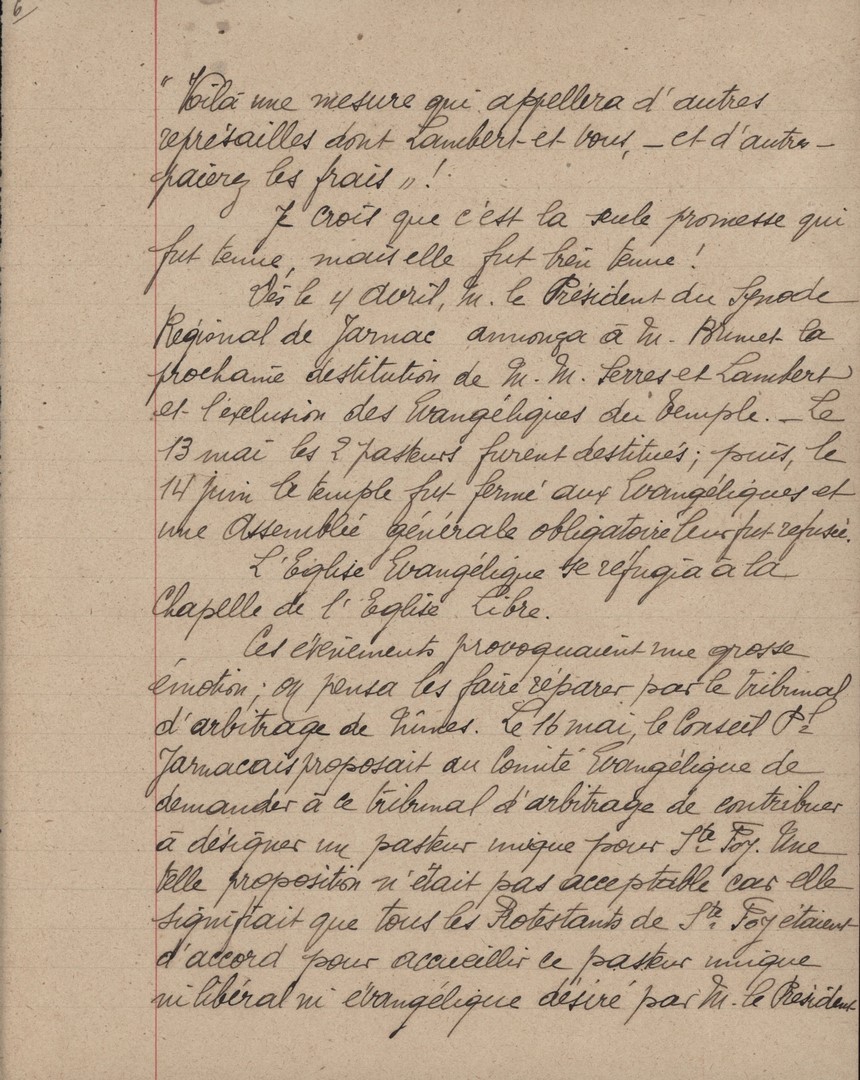 6
" Voilà une mesure qui appellera d'autres
représailles dont Lambert et vous, – et d'autres –
paierez les frais " !
Je crois que c'est la seule promesse qui
fut tenue, mais elle fut bien tenue !
Dès le 4 Avril, M. le Président du Synode
Régional de Jarnac annonça à M. Brunet la
prochaine destitution de M. M. Serres et Lambert
et l'exclusion des Evangéliques du temple. – Le
13 mai les 2 pasteurs furent destitués ; puis, le
14 juin le temple fut fermé aux Evangéliques et
une Assemblée générale obligatoire leur fut refusée.
L'Eglise Evangélique se réfugia à la
Chapelle de l'Eglise Libre.
Ces évènements provoquaient une grosse
émotion ; on pensa les faire réparer par le tribunal
d'arbitrage de Nîmes. Le 16 mai, le Conseil Pal
Jarnacais proposait au Comité Evangélique de
demander à ce tribunal d'arbitrage de contribuer
à désigner un pasteur unique pour Ste Foy. Une
telle proposition n'était pas acceptable car elle
signifiait que tous les Protestants de Ste Foy étaient
d'accord pour accueillir ce pasteur unique
ni libéral ni évangélique désiré par M. le Président